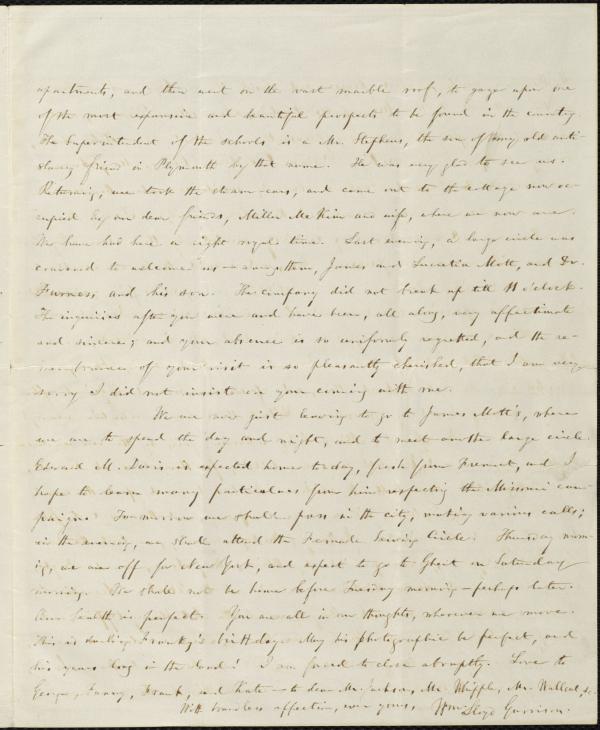 apartments, and then went on the vast marble roof, to gaze upon one
of the most expansive and beautiful prospects to be found in the country.
The Superintendent of the schools is a Mr. Stephens, the son of my old anti-
slavery friend in Plymouth by that name. He was very glad to see us.
Returning, we took the steam-cars, and came out to the cottage now oc-
cupied by our dear friends, Miller McKim and wife, where we now are.
We have had here a right royal time. Last evening, a large circle was
convened to welcome us – among them, James and Lucretia Mott, and Dr.
Furness and his son. The company did not break up till 11 o'clock.
The inquiries after you were and have been, all along, very affectionate
and sincere; and your absence is so uniformly regretted, and the re-
membrance of your visit is so pleasantly cherished, that I am very
sorry I did not insist on your coming with me.
We are now just leaving to go to James Mott's, where
we are to spend the day and night, and to meet another large circle.
Edward M. Davis is expected home to-day, fresh from Fremont, and I
hope to learn many particulars from him respecting the Missouri cam-
paign. To-morrow we shall pass in the city, making various calls;
in the evening, we shall attend the Female Sewing Circle. Thursday morn-
ing, we are off for New York, and expect to go to Ghent on Saturday
morning. We shall not be home before Tuesday morning – perhaps later.
Our health is perfect. You are all in our thoughts, wherever we move.
This is darling Franky's birthday. May his photographic be perfect, and
his years long in the land! I am forced to close abruptly. Love to
George, Fanny, Frank, and Kate – to dear Mr. Jackson, Mr. Whipple, Mr. Wallcut, &c.
With boundless affection, ever yours, Wm. Lloyd Garrison.